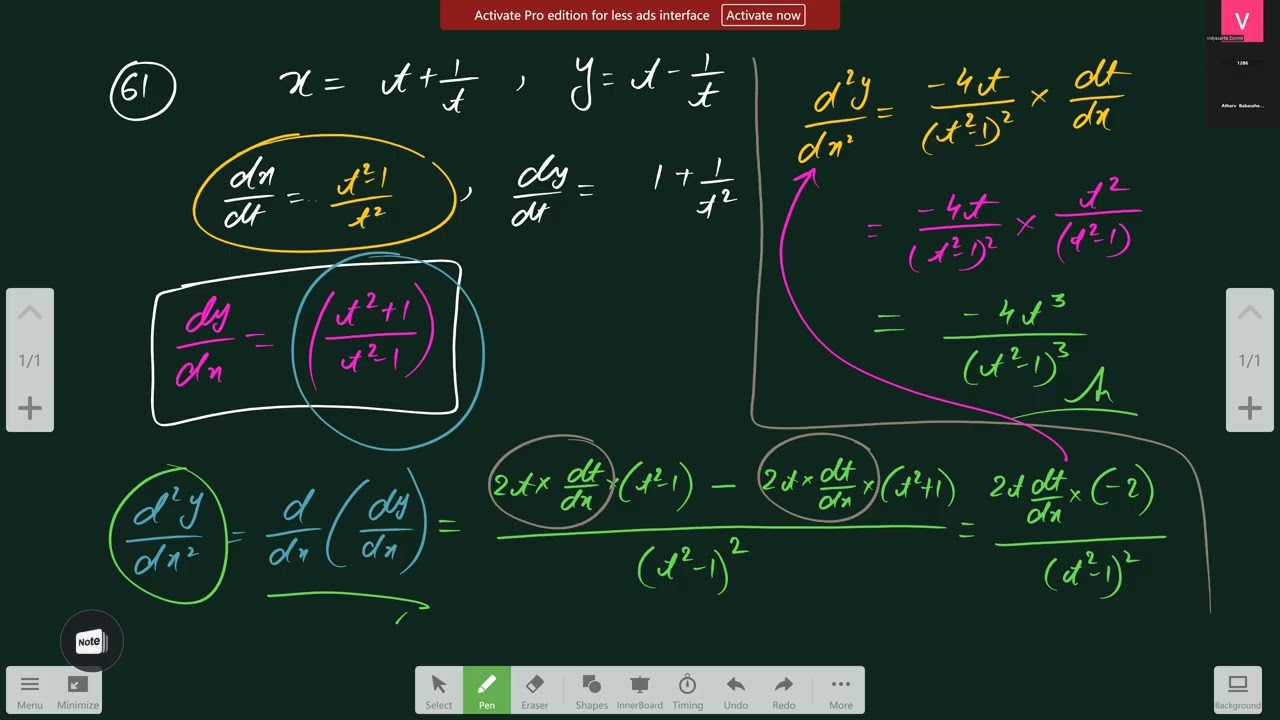 Activate Pro edition for less ads interface Activate now
V
Vidyasarita Zoom9
1286
Atharv Babasahe...
(61) x = t + 1/t , y = t - 1/t
dx/dt = (t²-1)/t² , dy/dt = 1 + 1/t²
dy/dx = ((t²+1)/(t²-1))
d²y/dx² = -4t/(t²-1)² × dt/dx
= -4t/(t²-1)² × t²/(t²-1)
= -4t³/(t²-1)³
d²y/dx² = d/dx (dy/dx) = (2t × dt/dx × (t²-1) - 2t × dt/dx × (t²+1))/(t²-1)² = (2t dt/dx × (-2))/(t²-1)²
1/1
1/1
Note
Menu Minimize Select Pen Eraser Shapes InnerBoard Timing Undo Redo More Background